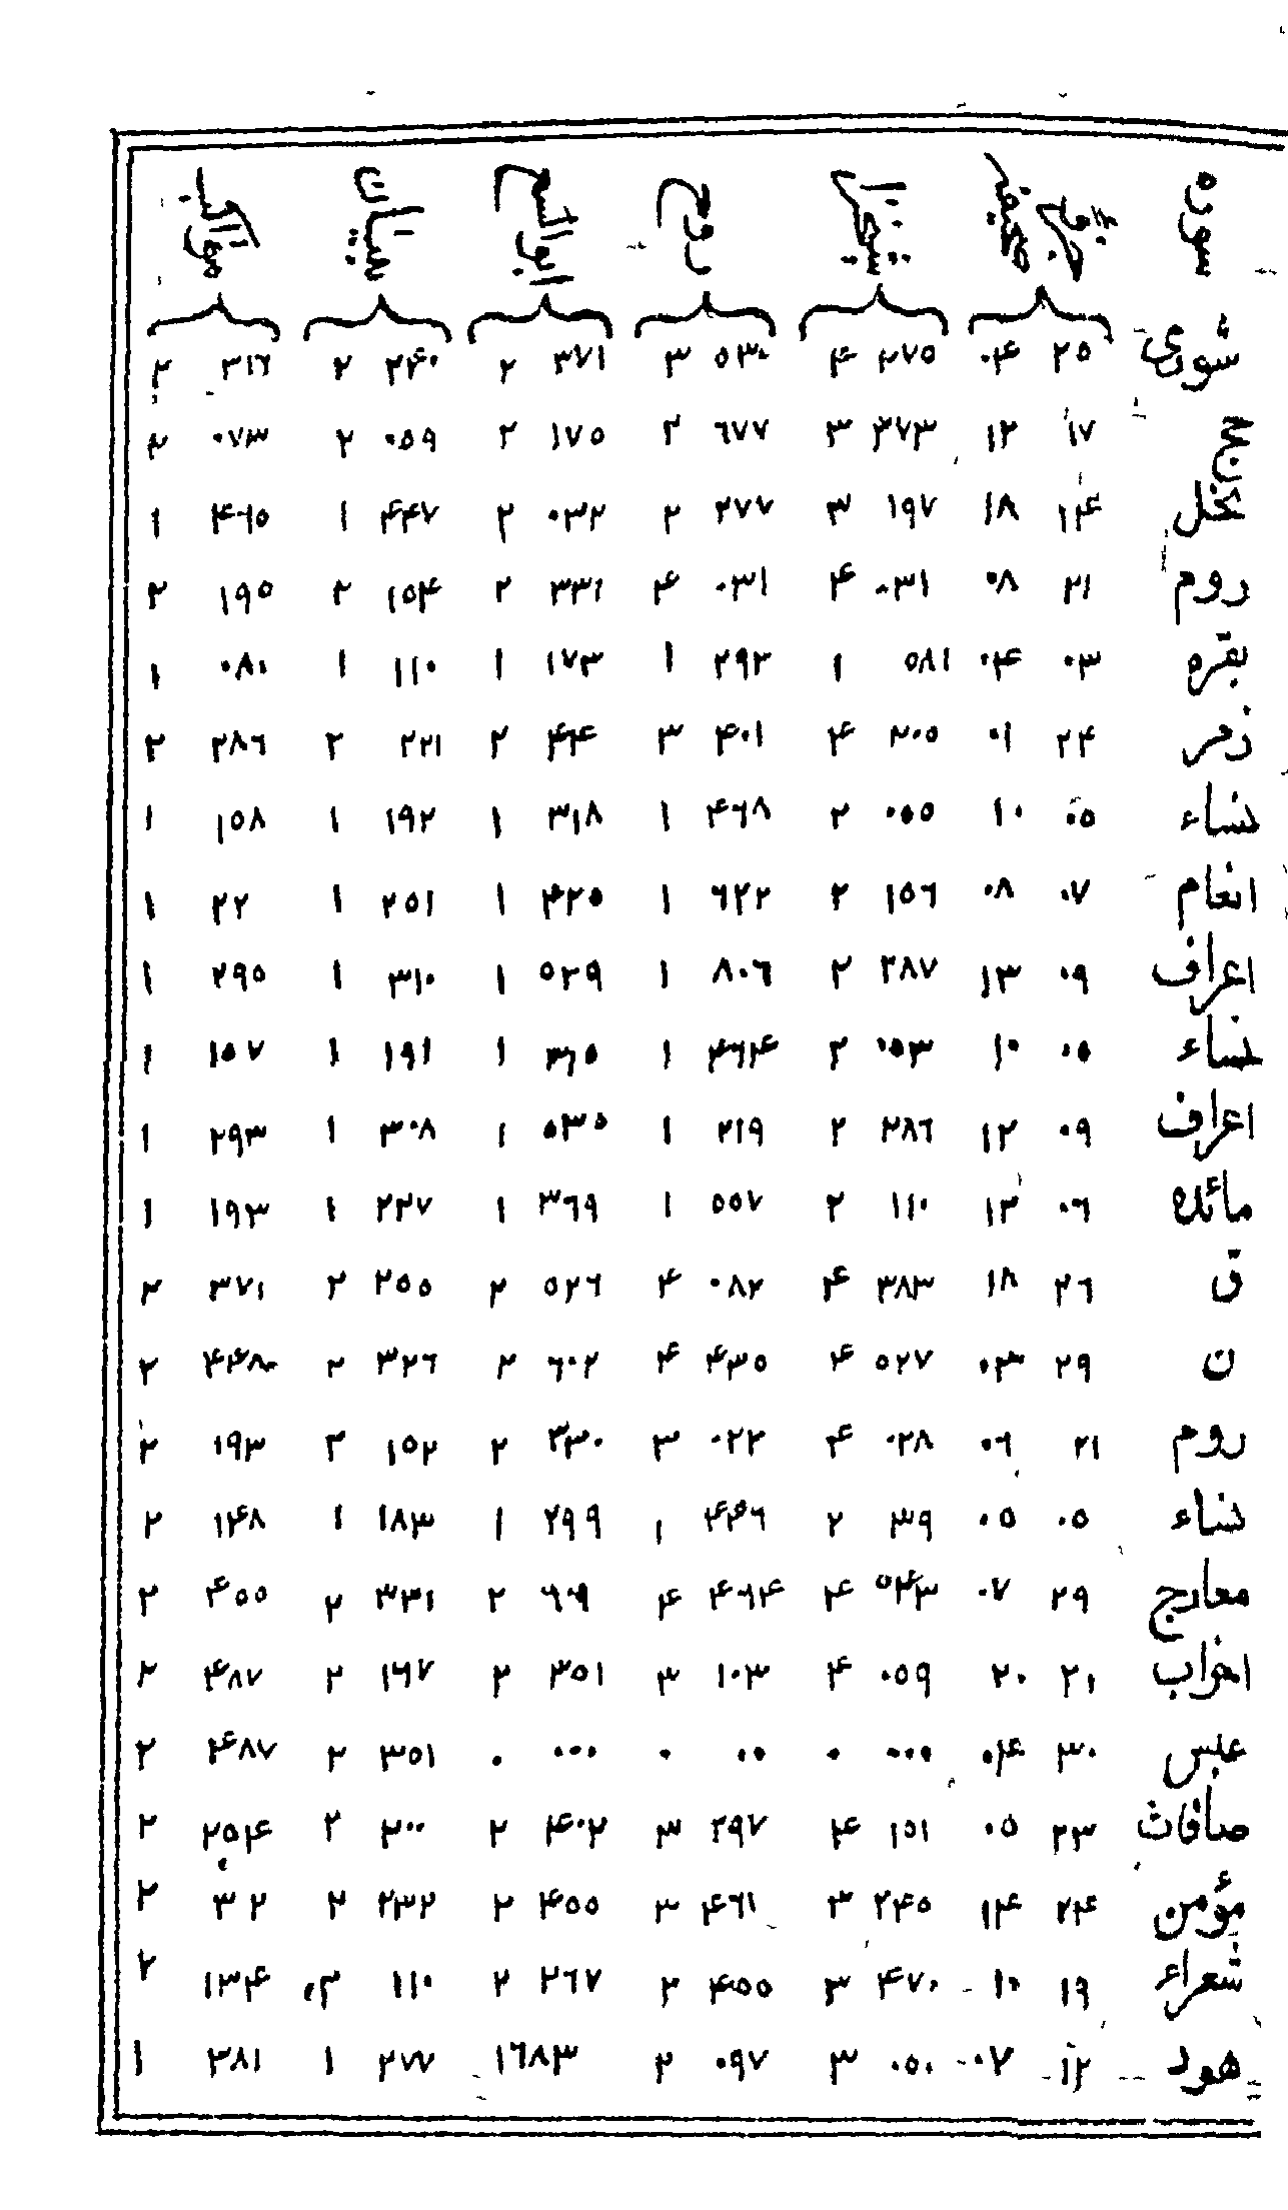 سوره
شوری ٢٥ ٠۴ ٢٧٥ ۴ ٥٣٠ ٣ ٣٧١ ٢ ٢۴٠ ٢ ٣١٦ ٢
حج ١٧ ١٢ ٣٧٣ ٣ ٦٧٧ ٢ ١٧٥ ٢ ٠٥٩ ٢ ٠٧٣ ٢
نحل ١۴ ١٨ ١٩٧ ٣ ٢٧٧ ٢ ٠٣٢ ٢ ۴۴٧ ١ ۴٦٥ ١
روم ٢١ ٠٨ ٠٣١ ۴ ٠٣١ ۴ ٣٣١ ٢ ١٥۴ ٢ ١٩٥ ٢
بقره ٠٣ ٠۴ ٥٨١ ١ ٢٩٢ ١ ١٧٣ ١ ١١٠ ١ ٠٨٠ ١
زمر ٢۴ ٠١ ٢٠٥ ۴ ۴٠١ ٣ ۴۴ ٢ ٢٢١ ٢ ٢٨٦ ٢
نساء ٠٥ ١٠ ٠٥٥ ٢ ۴٦٨ ١ ٣١٨ ١ ١٩٢ ١ ١٥٨ ١
انعام ٠٧ ٠٨ ١٥٦ ٢ ٦٢٢ ١ ۴٢٥ ١ ٢٥١ ١ ٢٢ ١
اعراف ٠٩ ١٣ ٢٨٧ ٢ ٨٠٦ ١ ٥٢٩ ١ ٣١٠ ١ ٢٩٥ ١
نساء ٠٥ ١٠ ٠٥٣ ٢ ۴٦۴ ١ ٣٦٥ ١ ١٩١ ١ ١٥٧ ١
اعراف ٠٩ ١٢ ٢٨٦ ٢ ٢١٩ ١ ٥٣٥ ١ ٣٠٨ ١ ٢٩٣ ١
مائده ٠٦ ١٣ ١١٠ ٢ ٥٥٧ ١ ٣٦٩ ١ ٢٢٧ ١ ١٩٣ ١
ق ٢٦ ١٨ ٣٨٣ ۴ ٠٨٢ ۴ ٥٢٦ ٢ ٢٥٥ ٢ ٣٧١ ٢
ن ٢٩ ٠٣ ٥٢٧ ۴ ۴٣٥ ۴ ٦٠٢ ٢ ٣٢٦ ٢ ۴۴٨ ٢
روم ٢١ ٠٦ ٠٢٨ ۴ ٠٢٢ ٣ ٣٣٠ ٢ ١٥٢ ٢ ١٩٣ ٢
نساء ٠٥ ٠٥ ٣٩ ٢ ۴۴٦ ١ ٢٩٩ ١ ١٨٣ ١ ١۴٨ ٢
معارج ٢٩ ٠٧ ٥۴٣ ۴ ۴٦۴ ۴ ٦٠٩ ٢ ٣٣١ ٢ ۴٥٥ ٢
احزاب ٢١ ٢٠ ٠٥٩ ۴ ١٠٣ ٣ ٣٥١ ٢ ١٦٧ ٢ ۴٨٧ ٢
عبس ٣٠ ٠۴ ٠٠٠ ٠ ٠٠ ٠ ٠٠٠ ٠ ٣٥١ ٢ ۴٨٧ ٢
صافات ٢٣ ٠٥ ١٥١ ۴ ٢٩٧ ٣ ۴٠٢ ٢ ٢٠٠ ٢ ٢٥۴ ٢
مؤمن ٢۴ ١۴ ٢۴٥ ٣ ۴٦١ ٣ ۴٥٥ ٢ ٢٣٢ ٢ ٣٢ ٢
شعراء ١٩ ١٠ ۴٧٠ ٣ ۴٥٥ ٢ ٢٦٧ ٢ ١١٠ ٢ ١٣۴ ٢
هود ١٢ ٠٧ ٠٥٠ ٣ ٠٩٧ ٢ ١٦٨٣ ٢٧٧ ١ ٢٨١ ١